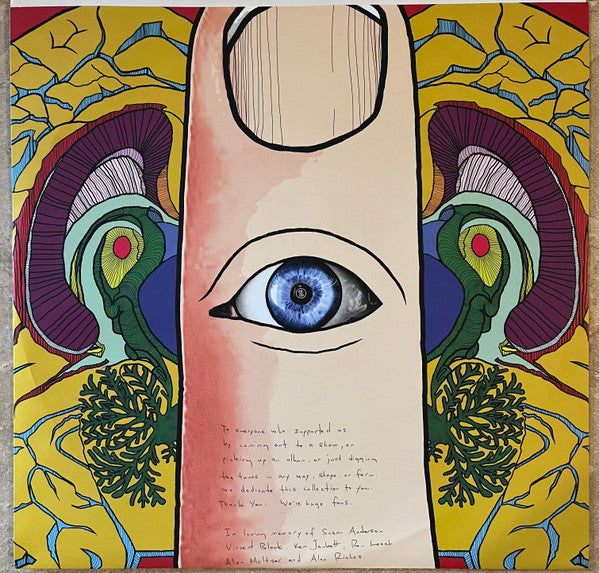 To everyone who supported us
by coming out to a show, or
picking up an album, or just digging
the tunes in any way, shape, or form.
we dedicate this collection to you.
Thank you. We're huge fans.
In loving memory of Susan Anderson
Vincent Black. Ken Jackett. Leech
Alan Meltzer and Alan